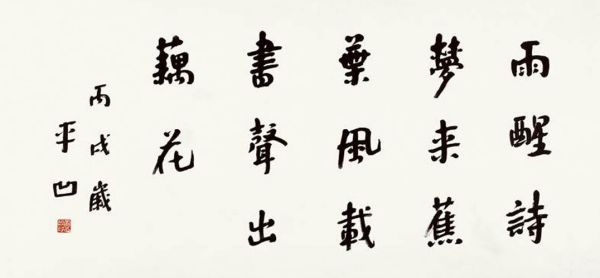 雨醒詩
夢来蕉
葉風載
書聲出
藕花
丙戌歲
平凹